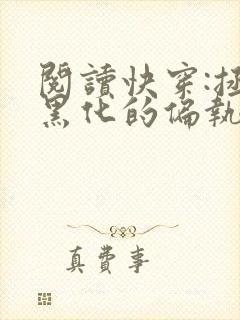 閱讀快穿:拯
黑化的偏執
真費事